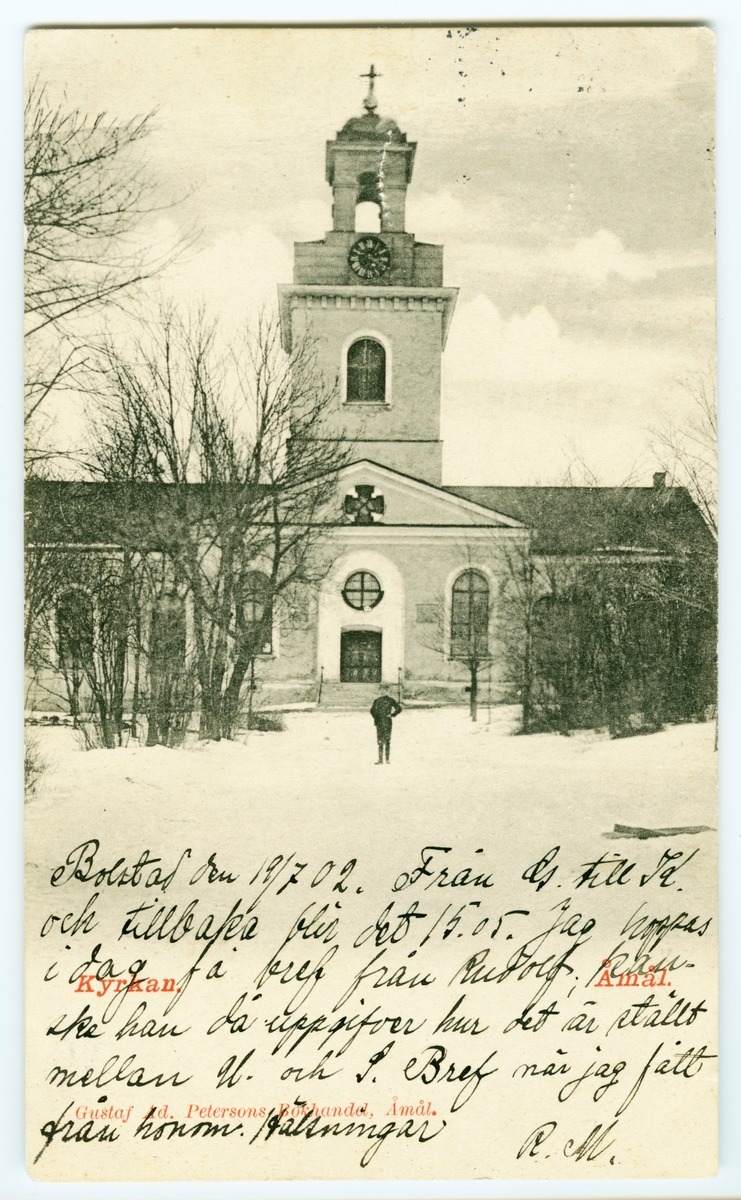 Bolstad den 19/7 02. Från Ås. till K.
och tillbaka blir det 15.05. Jag hoppas
i dag få bref från Rudolf, kan-
Kyrkan. Åmål.
ske han då uppgifver hur det är ställt
mellan U. och S. Bref när jag fått
Gustaf Ad. Petersons Bokhandel, Åmål.
från honom. Hälsningar
R. M.